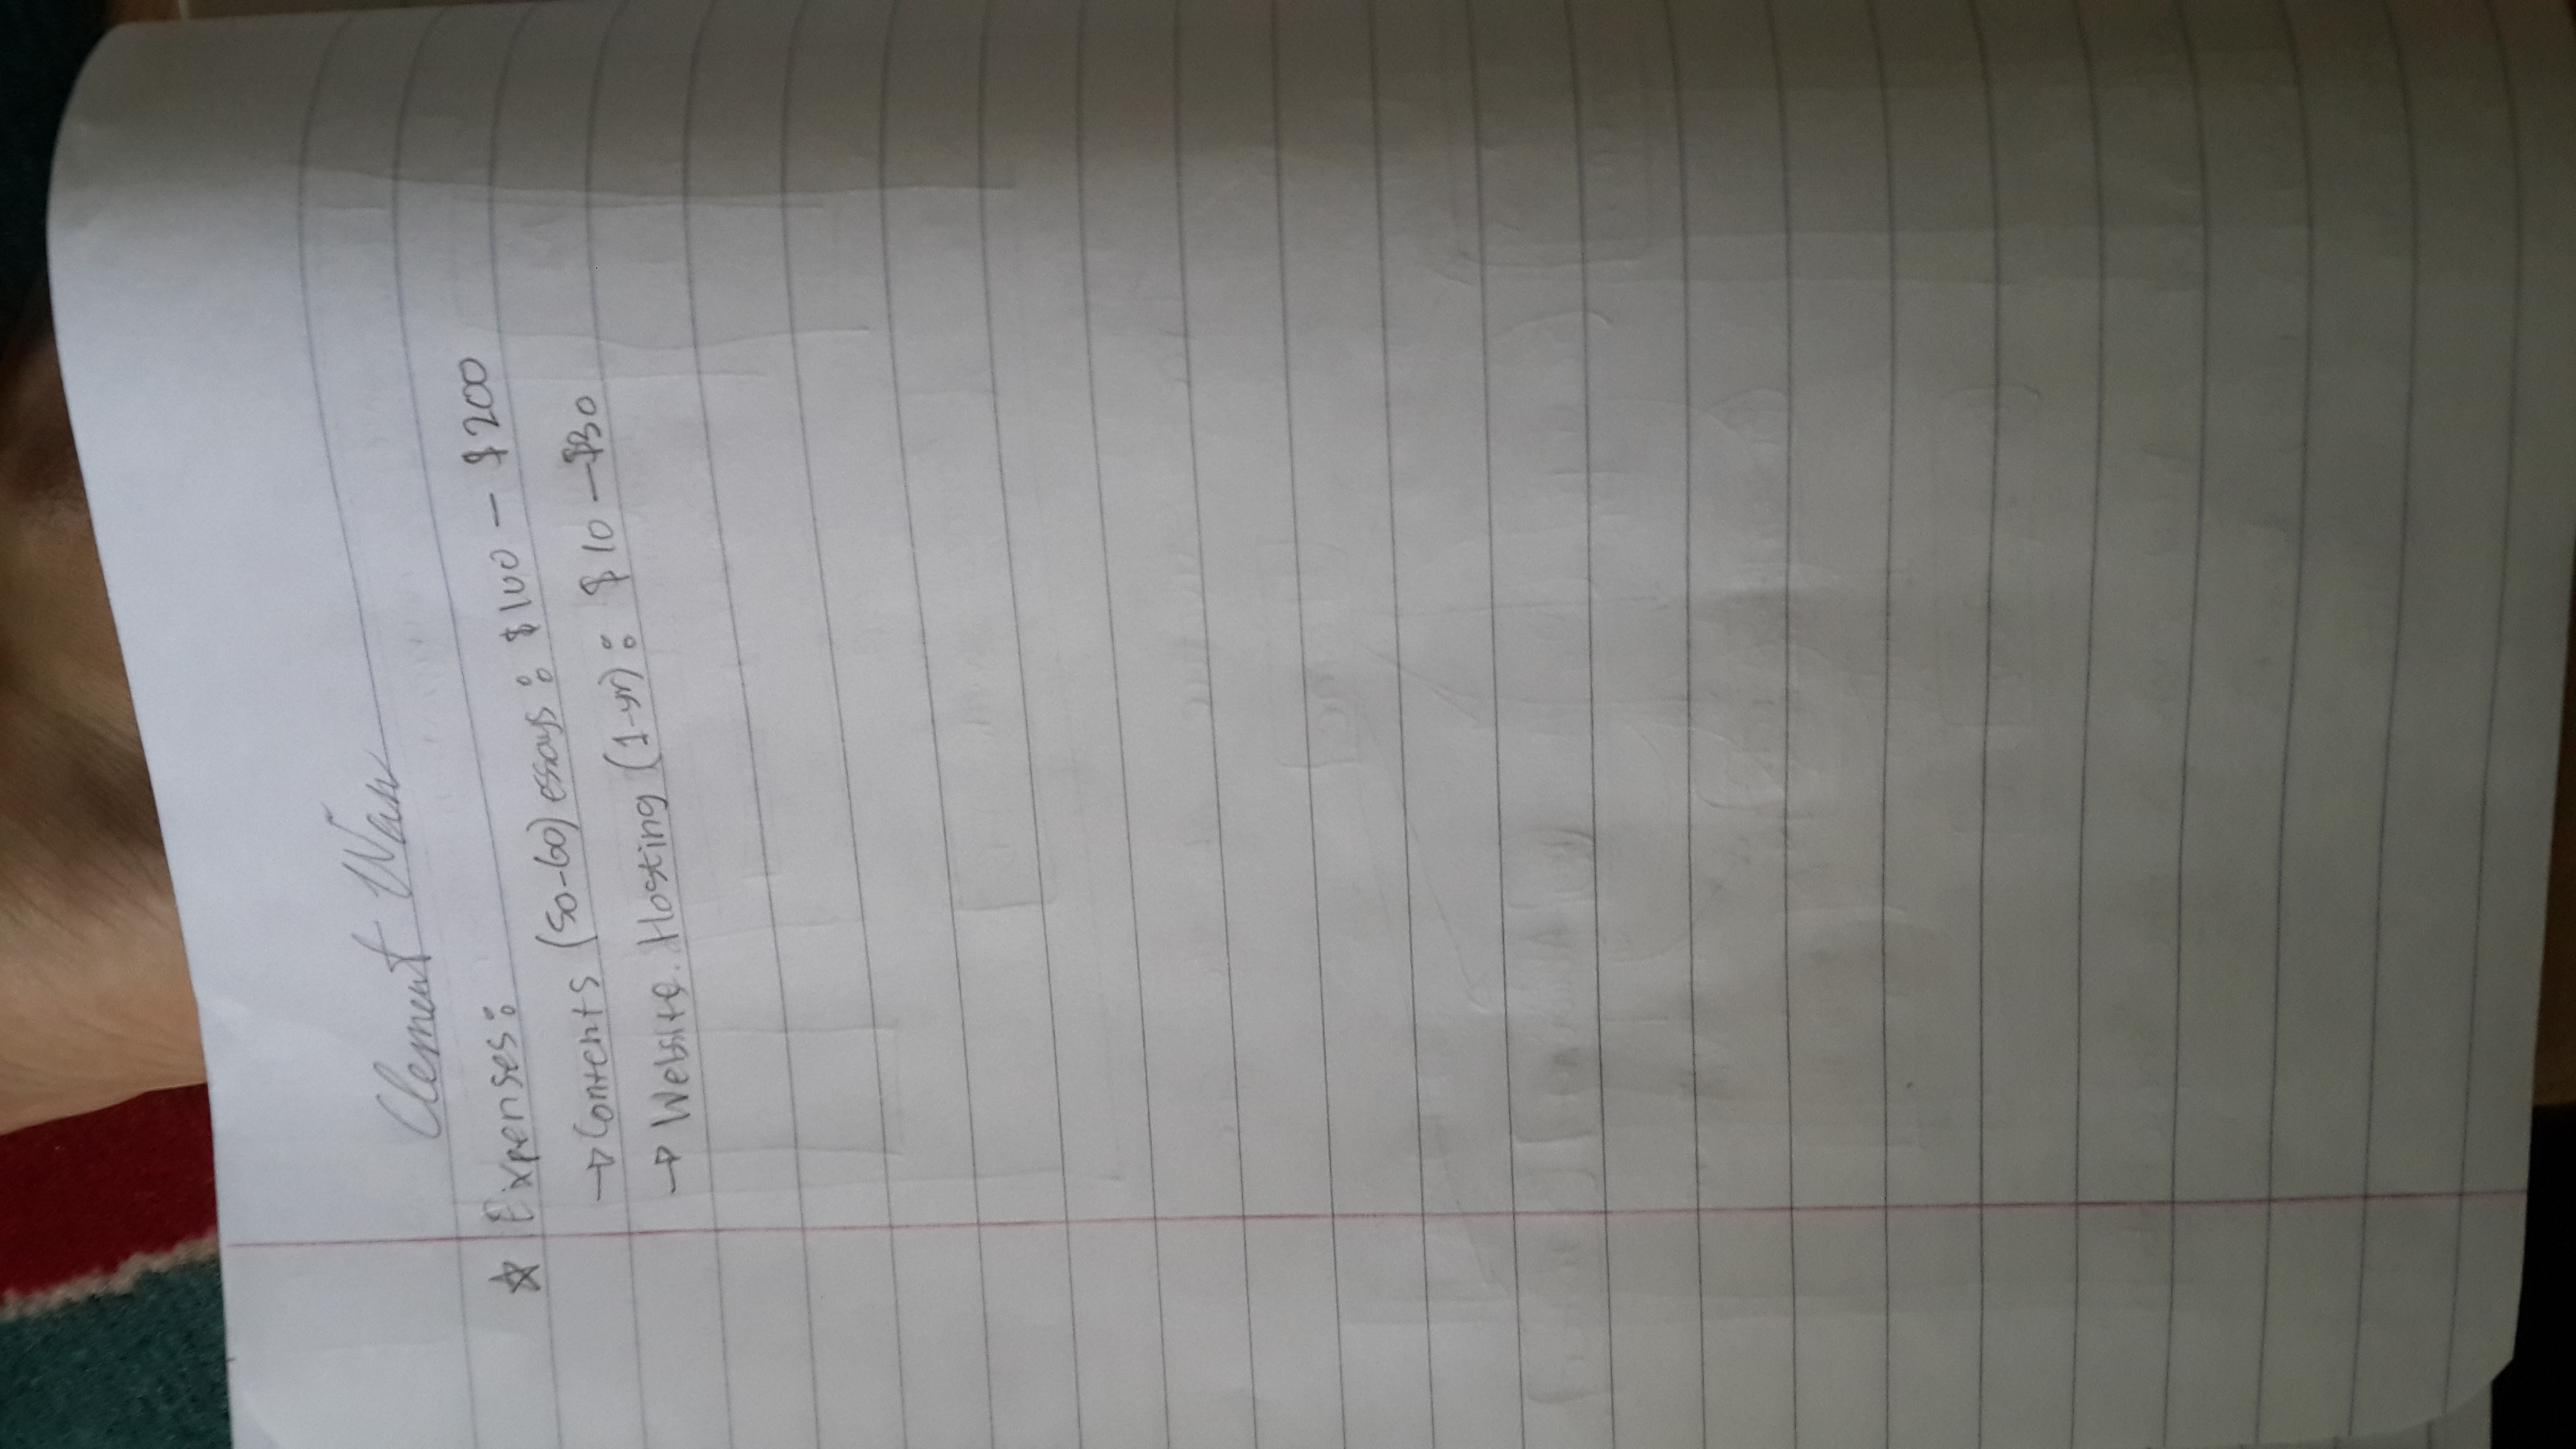 Clement Wan
☆ Expenses:
→ Contents (50-60) essays: $100 - $200
→ Website. Hosting (1-yr): $10 - $30